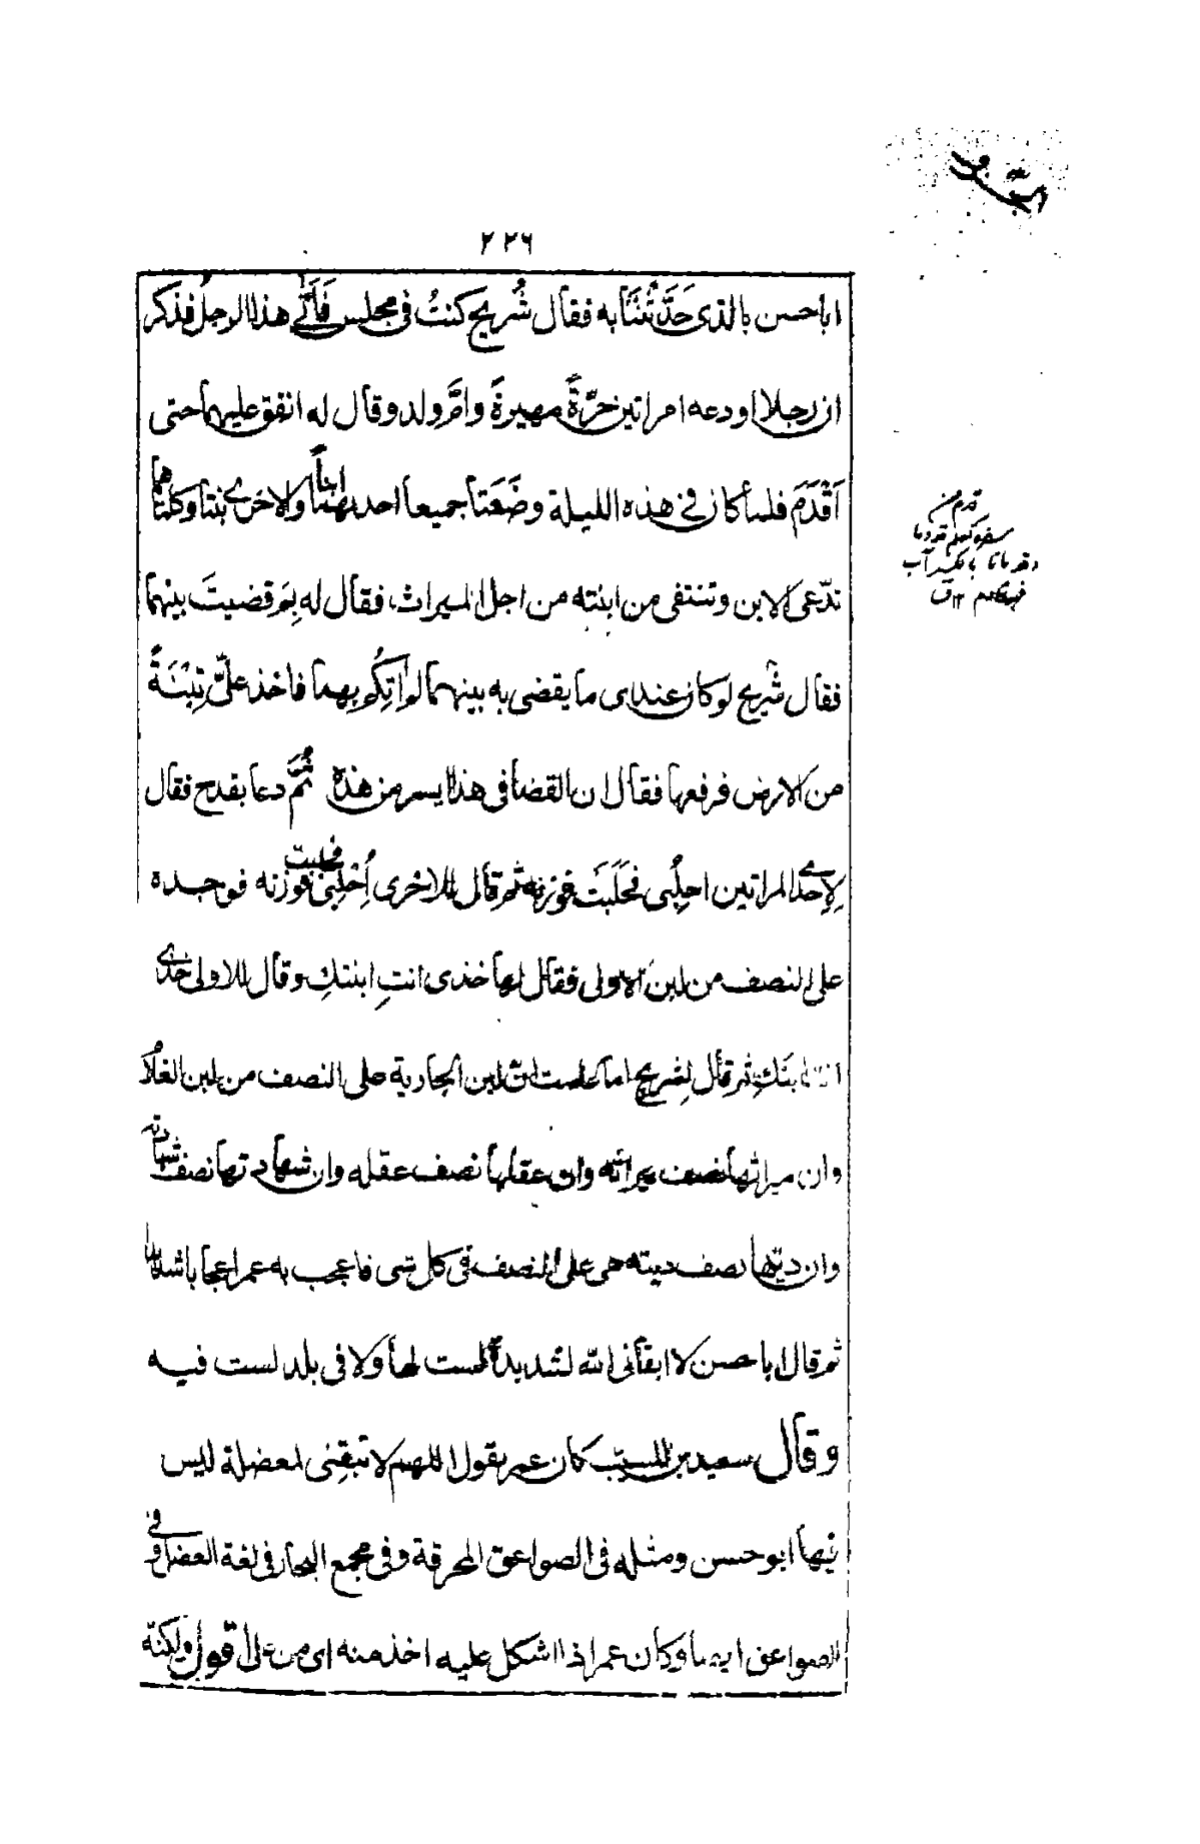 ٢٢٦
ابا حسن بالذى حَدَّثْتَنَا به فقال شُريح كنتُ فى مجلس فَأَتَى هذا الرجلُ فذكر
ان رجلا اودعه امراتين حرّةً مهيرةً وامَّ ولد وقال له انفق عليهما حتى
اَقْدَمَ فلما كان فى هذه الليلة وضَعَتا جميعا احدىهما ابناً والاخرى بنتا وكلتاهما
تدّعى الابن وتنتفى من ابنته من اجل الميراث، فقال له بِمَ قضيتَ بينهما
فقال شُريح لو كان عندى ما يقضى به بينهما لم اٰتِكُم بهما فاخذ علىٌّ تِبْنَةً
من الارض فرفعها فقال ان القضا فى هذا ايسر من هذه ثُمَّ دعا بقدح فقال
لِاِحدَى المراتين احلِبُى فحَلَبَت فوزنه ثم قال للاخرى اُحْلبُى فحلبت فوزنه فوجده
على النصف من لبن الاولى فقال لها خذى انتِ ابنتكِ وقال للاولى خذى
انتِ ابنَكِ ثم قال لِشريح اما علمت انّ لبن الجارية على النصف من لبن الغلام
وان ميراثها نصف ميراثه وان عقلها نصف عقله وان شهادتها نصف شهادته
وان ديتها نصف ديته هى على النصف فى كل شى فاعجب به عمر اعجابا شديدا
ثم قال ابا حسن لا ابقانى الله لشديدة لست لها ولا فى بلد لست فيه
وقال سعيد بن المسيّب كان عمر يقول اللهم لا تبقِنى لمعضلة ليس
فيها ابو حسن ومثله فى الصواعق المحرقة وفى مجمع البحار فى لغة العضل وفى
الصواعق ايضا وكان عمر اذا اشكل عليه اخذ منه اى من على اقول ولكنّه
قدم من
سفره كعلم قدوما